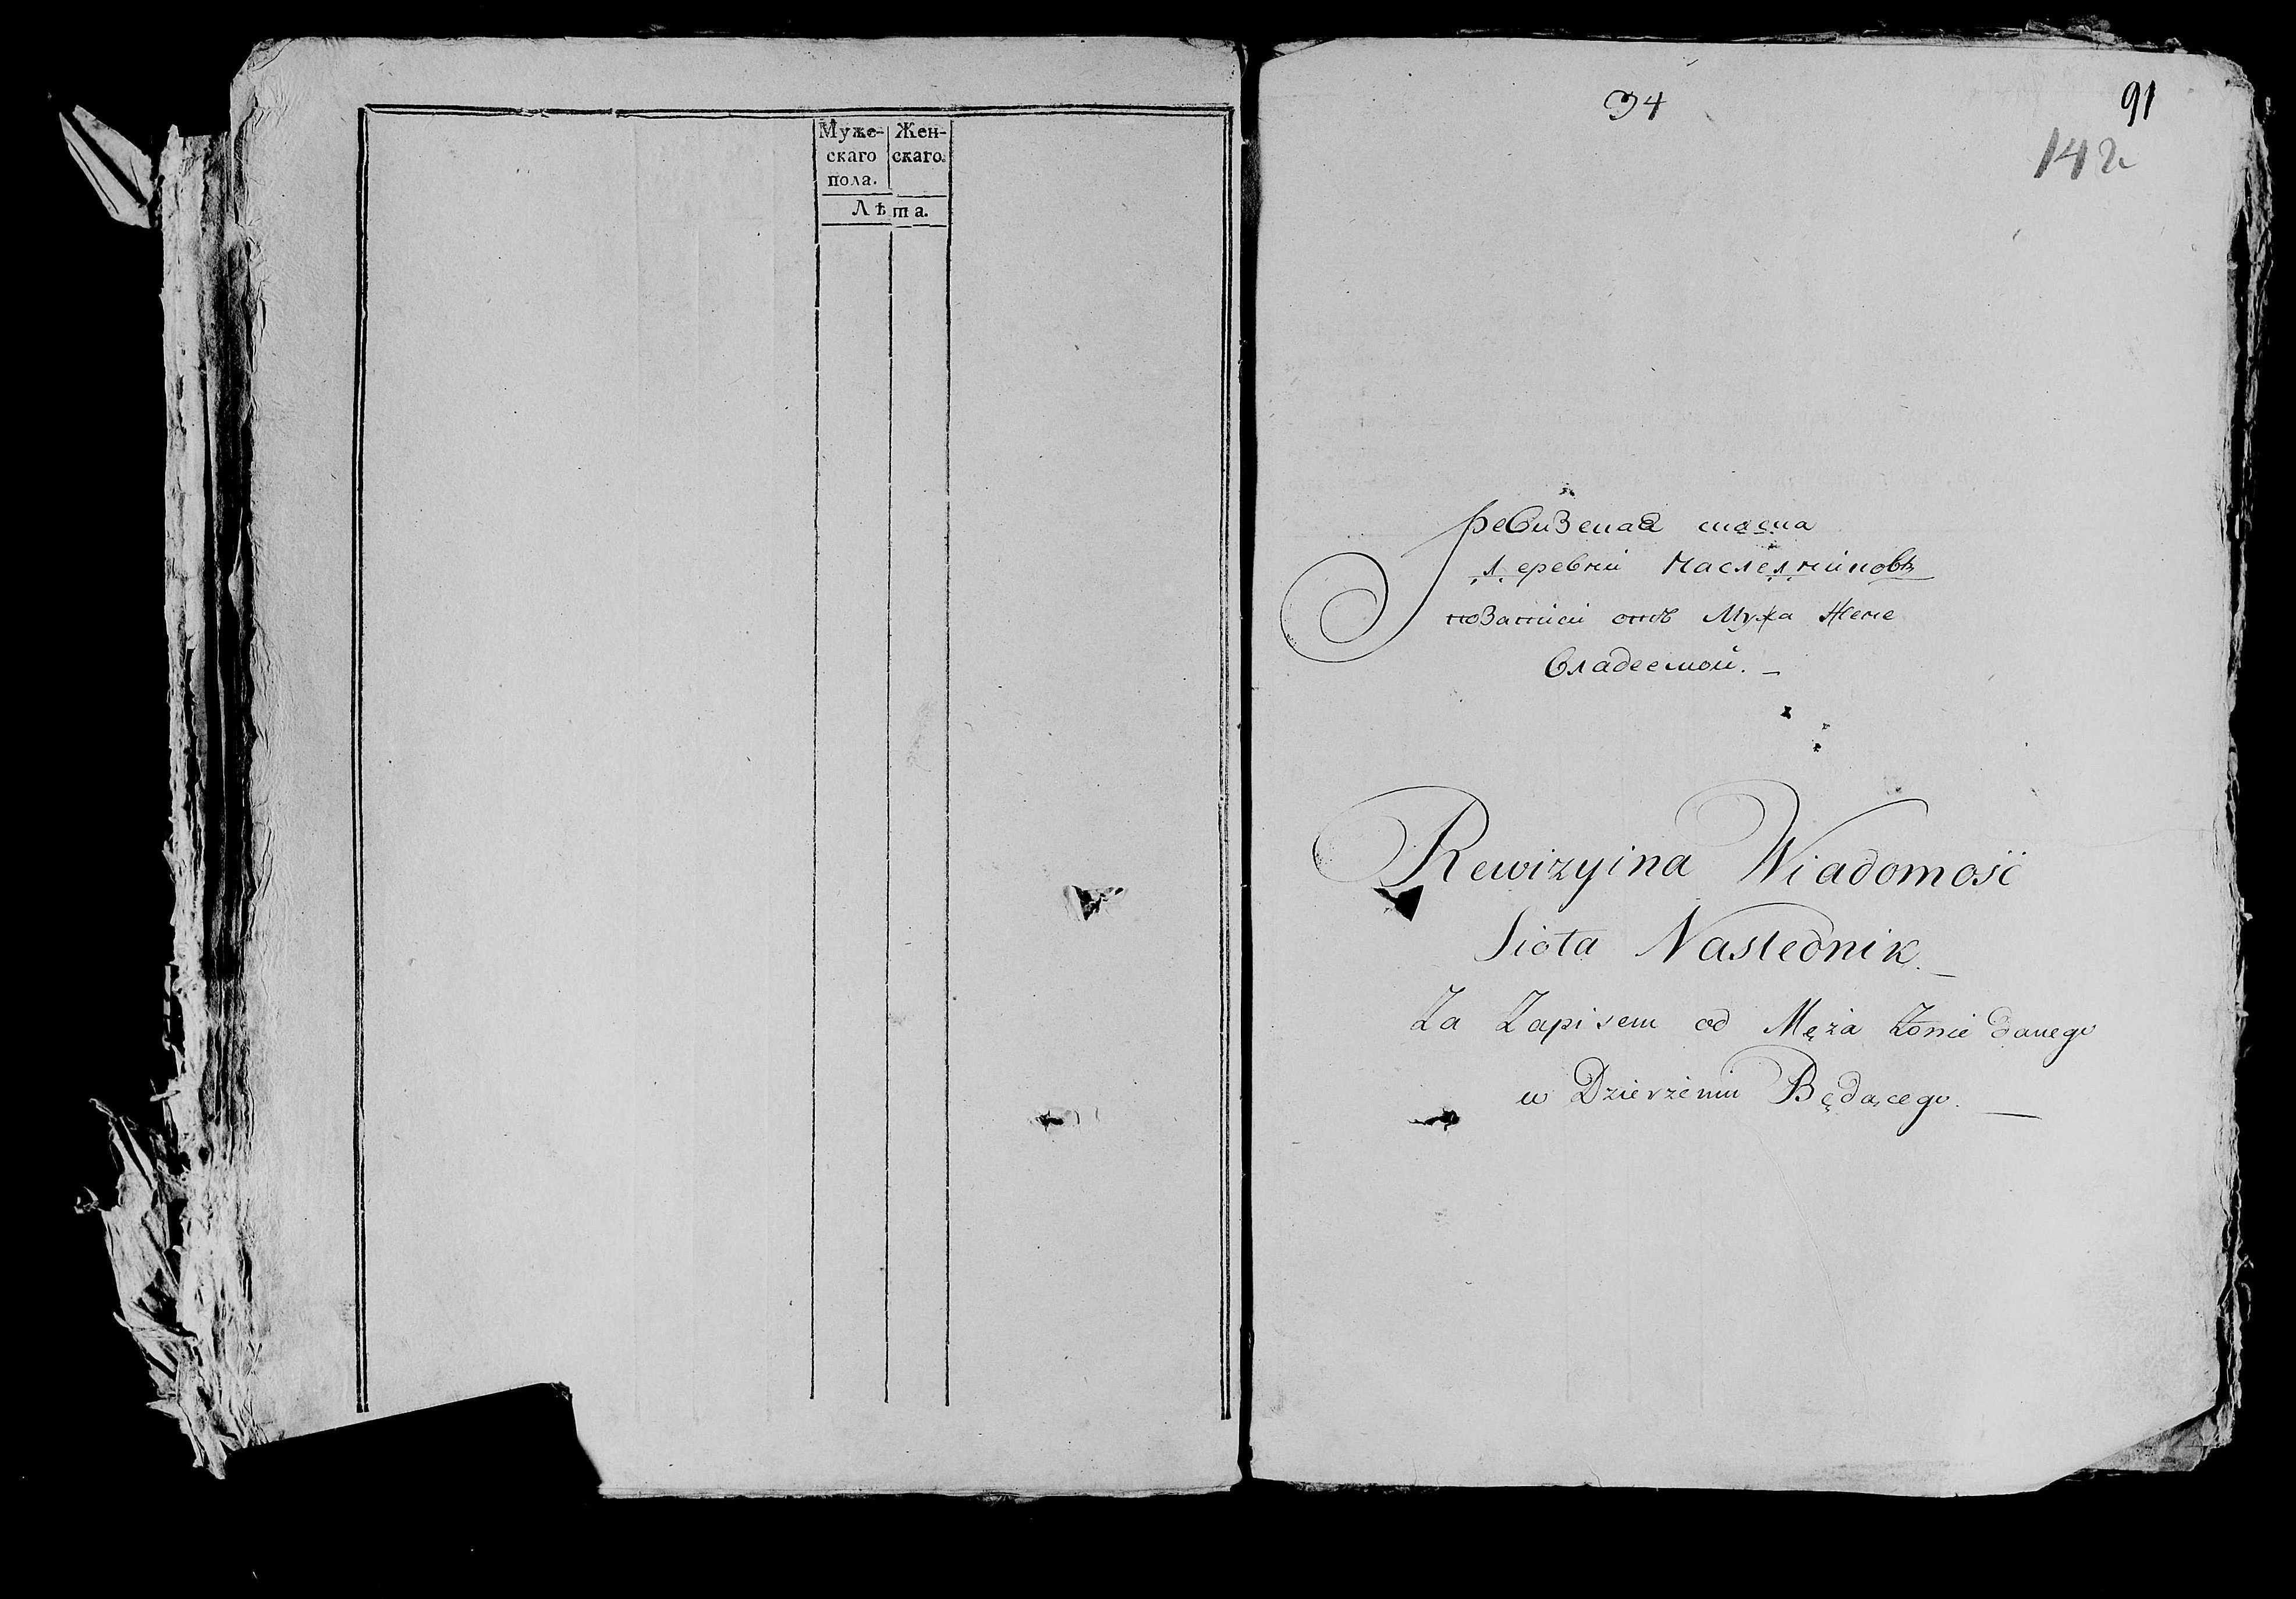 Муже- Жен-
скаго скаго.
пола.
Лѣта.
94
91
142
Ревизская
деревни
позаписи отъ Мужа Жене
владеемой. —
Rewizyina Wiadomość
Siota Naslednik. —
Za Zapisem od Męża Żonie danego
w Dzierżeniu Będącego. —